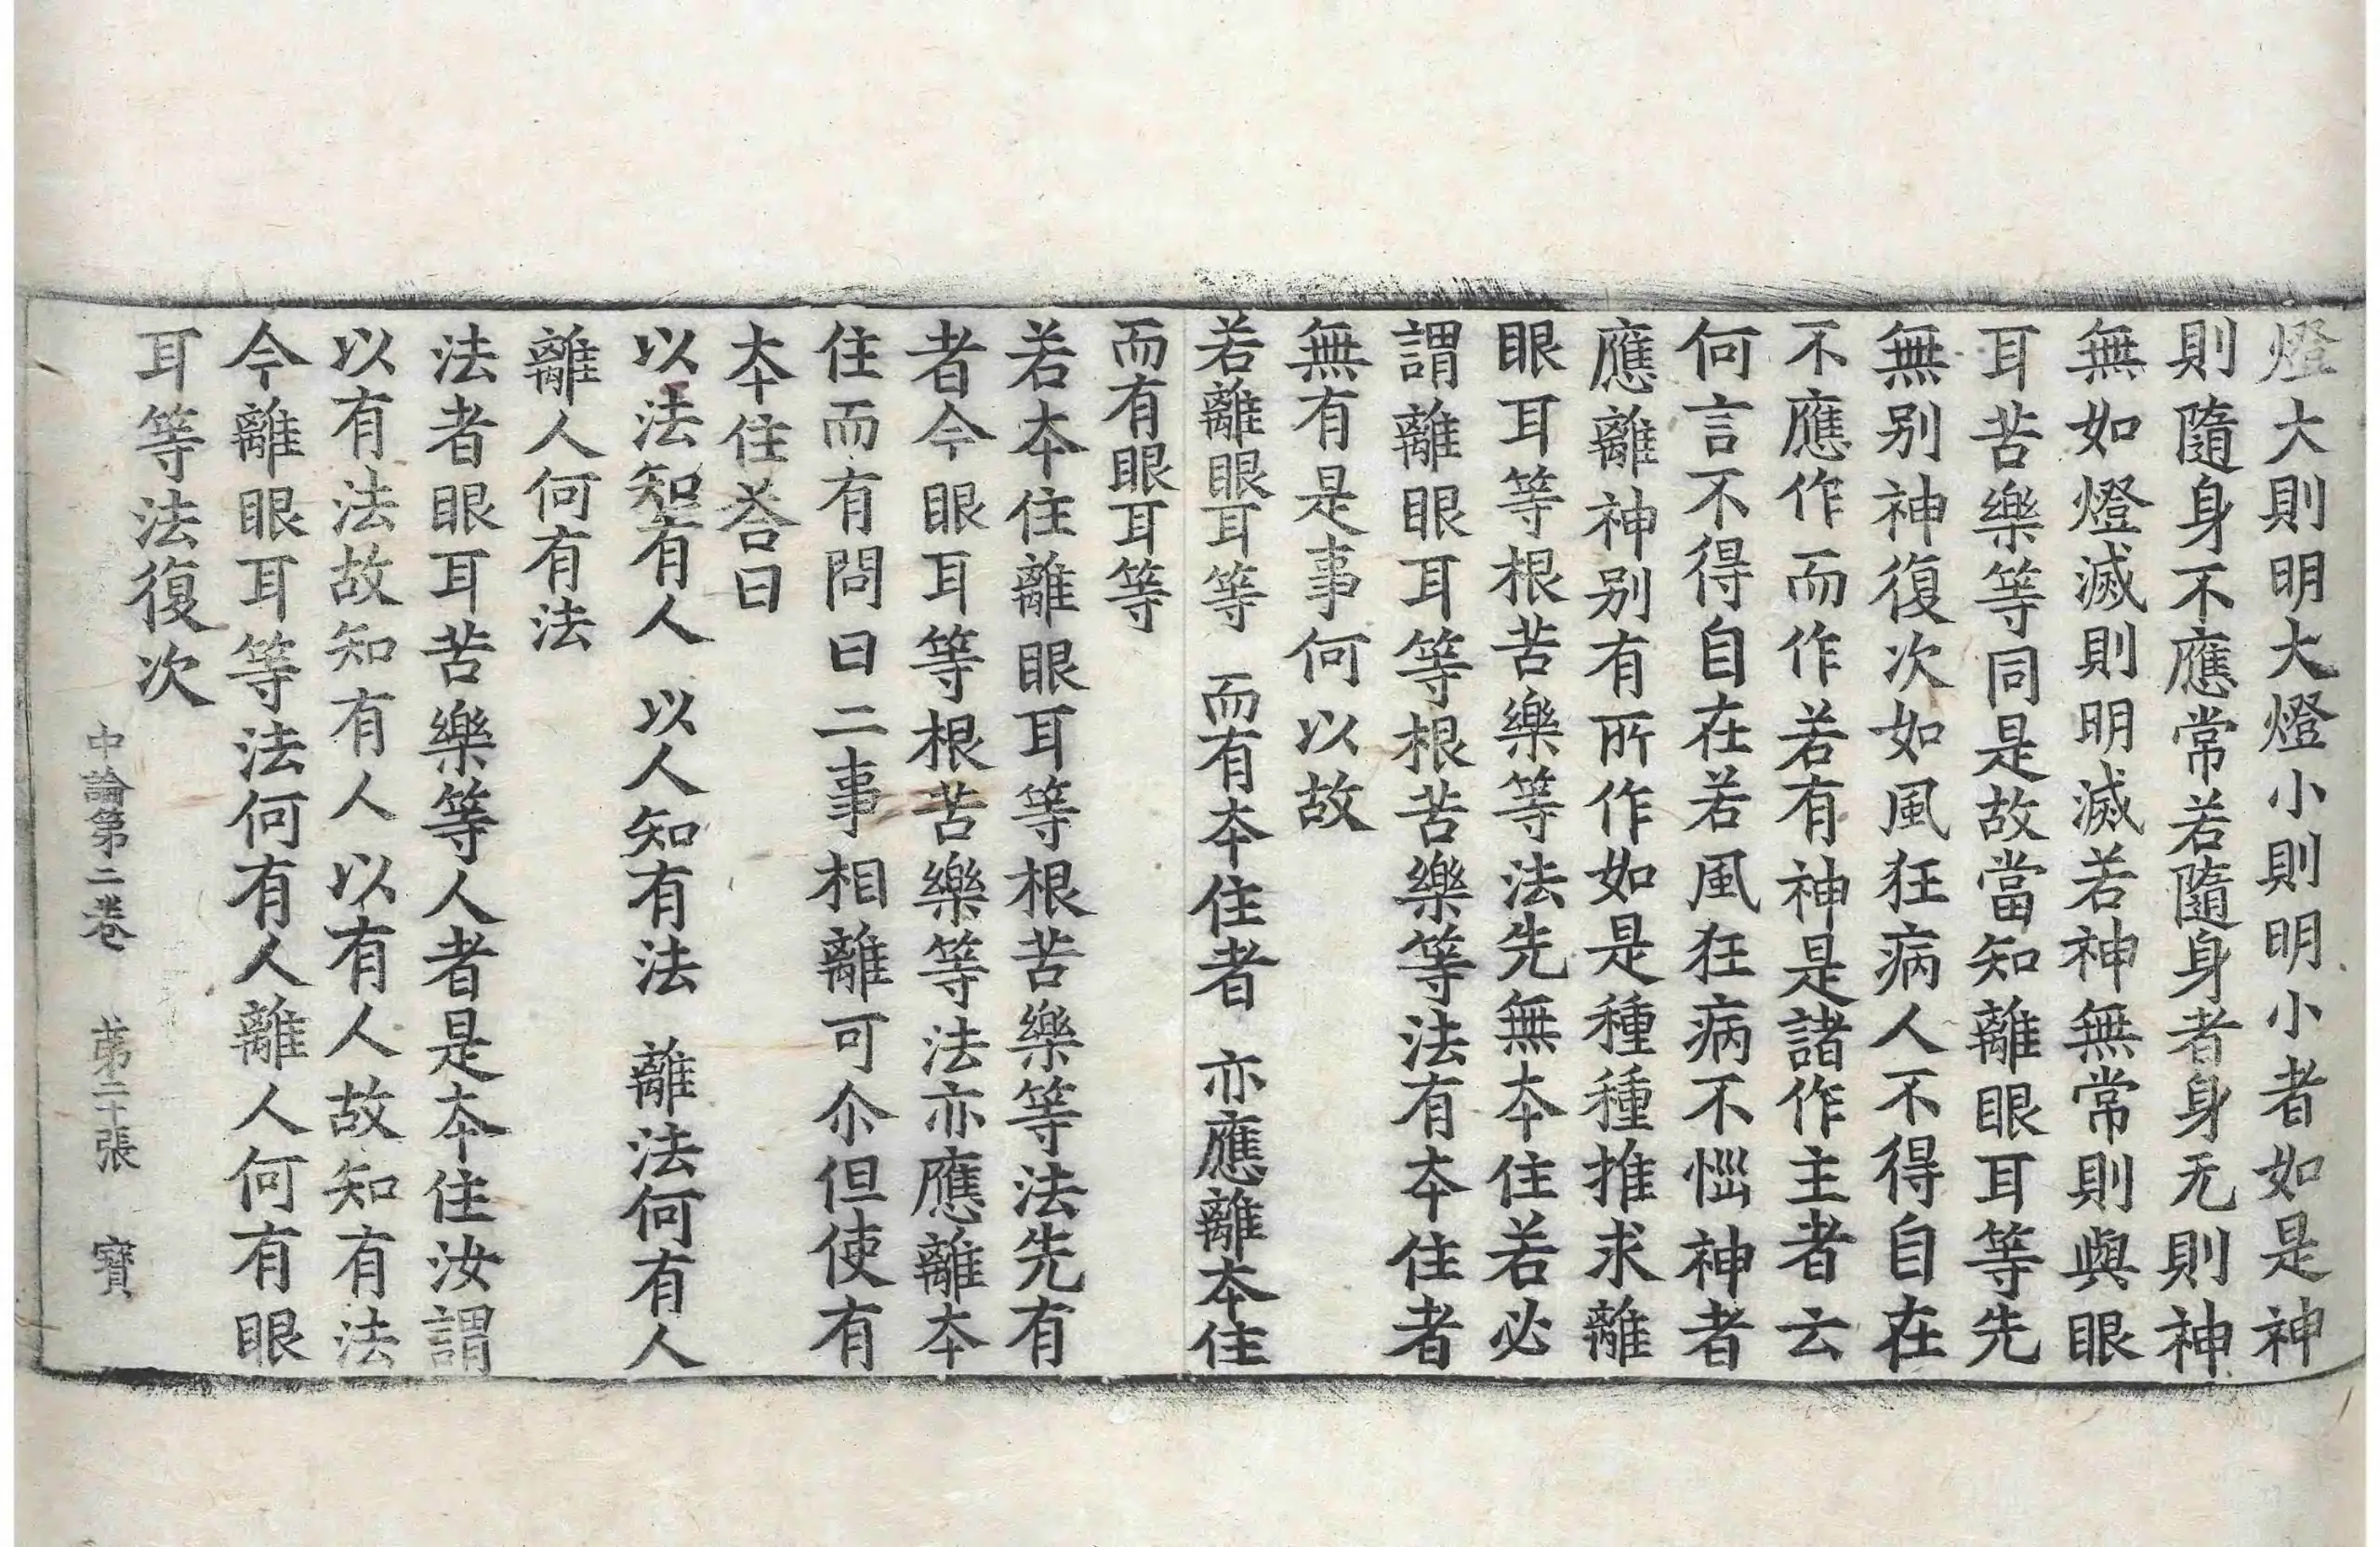 燈大則明大燈小則明小者如是神
則隨身不應常若隨身者身无則神
無如燈滅則明滅若神無常則與眼
耳苦樂等同是故當知離眼耳等先
無別神復次如風狂病人不得自在
不應作而作若有神是諸作主者云
何言不得自在若風狂病不惱神者
應離神別有所作如是種種推求離
眼耳等根苦樂等法先無本住若必
謂離眼耳等根苦樂等法有本住者
無有是事何以故
若離眼耳等　而有本住者　亦應離本住
而有眼耳等
若本住離眼耳等根苦樂等法先有
者今眼耳等根苦樂等法亦應離本
住而有問曰二事相離可尒但使有
本住荅曰
以法知有人　以人知有法　離法何有人
離人何有法
法者眼耳苦樂等人者是本住汝謂
以有法故知有人以有人故知有法
今離眼耳等法何有人離人何有眼
耳等法復次
中論第二卷　苐二十張　寶